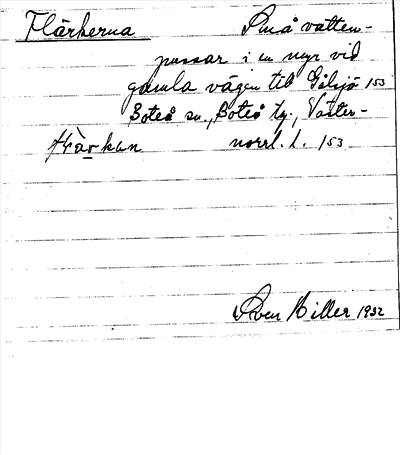 Flärkerna Små vatten-
pussar i en myr vid
gamla vägen till Gålsjö 153
Boteå sn., Boteå tg., Väster-
norrl. l. 153
flärkan
Sven Hiller 1932